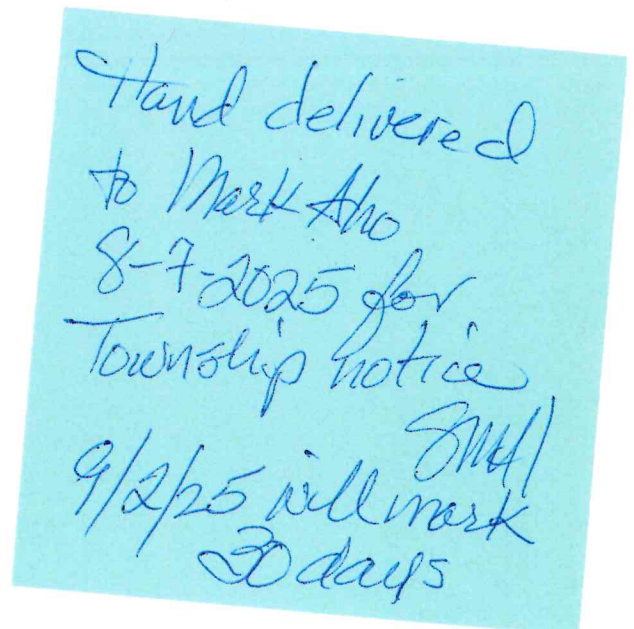 Hand delivered
to Mark Aho
8-7-2025 for
Township notice
9/2/25 will mark
30 days